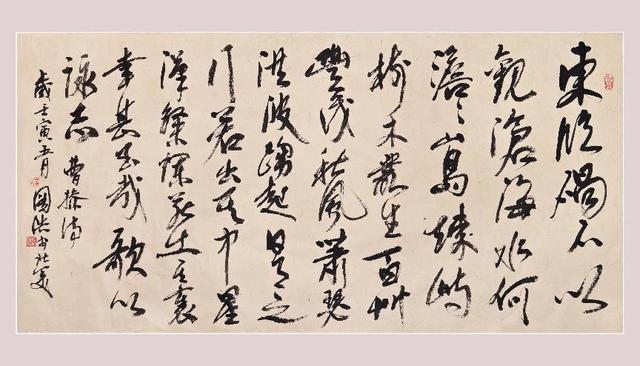 東臨碣石以
觀滄海水何
澹〻山島竦峙
樹木叢生百艸
豐茂秋風蕭瑟
洪波踴起日月之
行若出其中星
漢燦爛若出其裏
幸甚至哉歌以
詠志 曹操詩
歲壬寅五月